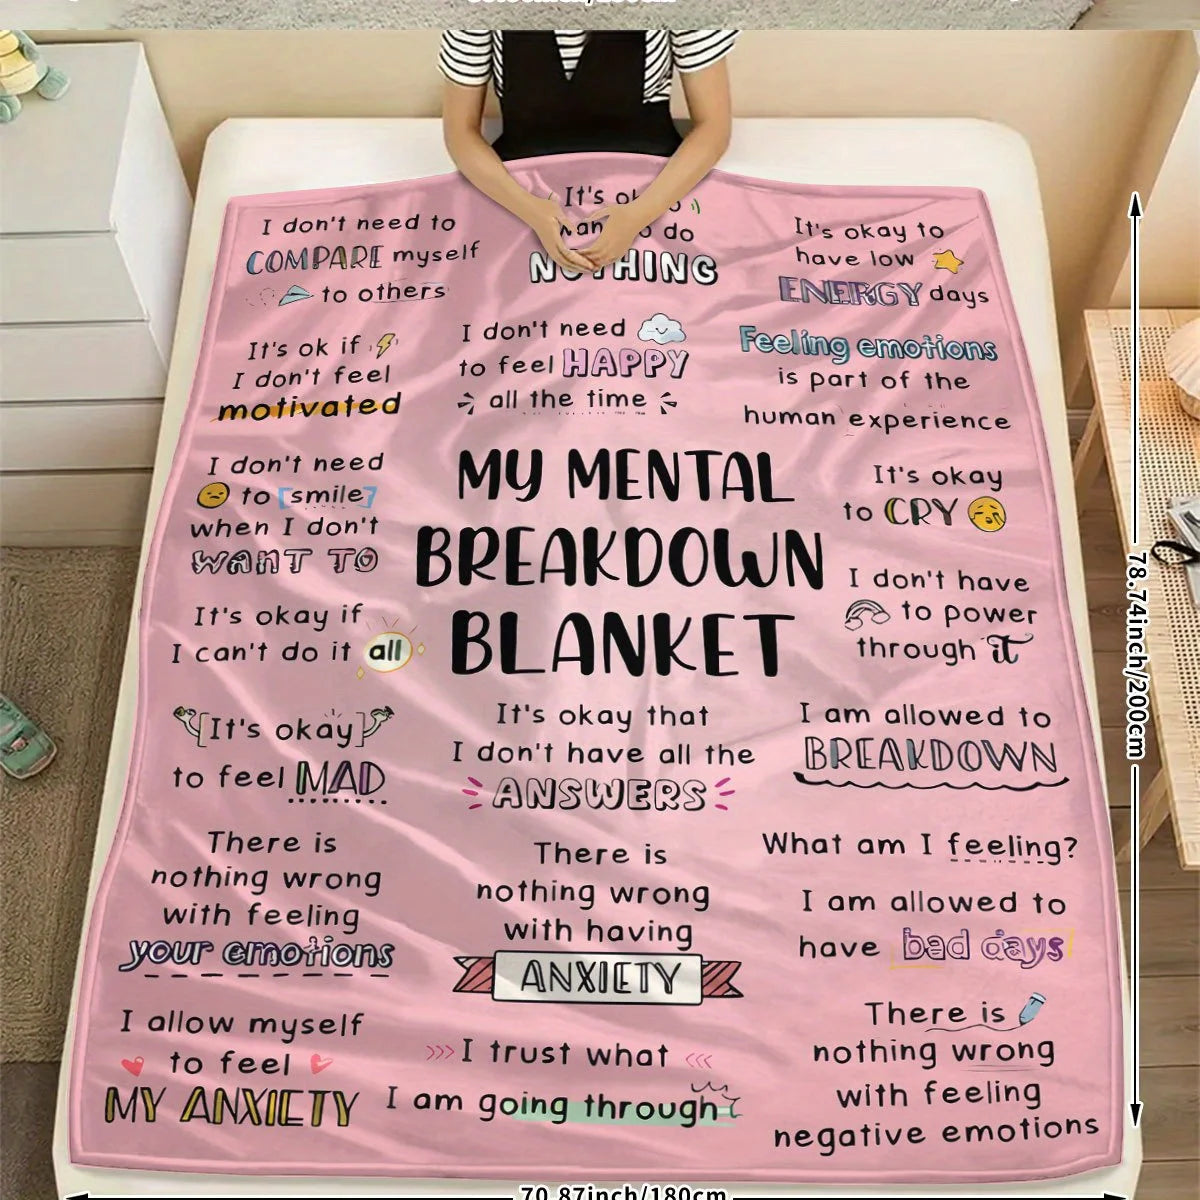 I don't need to
COMPARE myself
to others
It's ok
to do
NOTHING
It's okay to
have low
ENERGY days
It's ok if
I don't feel
motivated
I don't need
to feel HAPPY
all the time
Feeling emotions
is part of the
human experience
I don't need
to smile
when I don't
WANT TO
MY MENTAL
BREAKDOWN
BLANKET
It's okay
to CRY
I don't have
to power
through it
It's okay if
I can't do it all
[It's okay]
to feel MAD
It's okay that
I don't have all the
ANSWERS
I am allowed to
BREAKDOWN
There is
nothing wrong
with feeling
your emotions
There is
nothing wrong
with having
ANXIETY
What am I feeling?
I am allowed to
have bad days
I allow myself
to feel
MY ANXIETY
>>> I trust what <<<
I am going through
There is
nothing wrong
with feeling
negative emotions
78.74inch/200cm
70.87inch/180cm